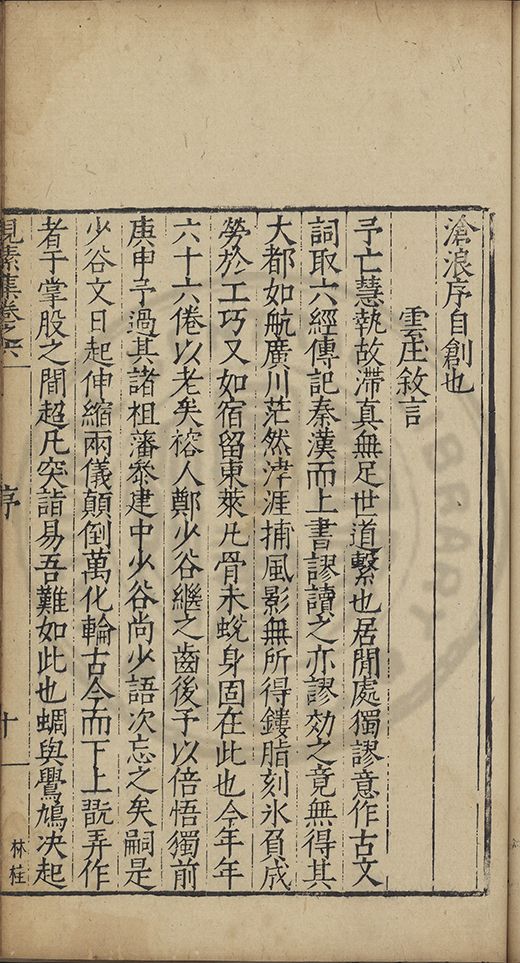 滄浪序自創也
雲庄敘言
予亡慧執故滯真無足世道繫也居閒處獨謬意作古文
詞取六經傳記秦漢而上書謬讀之亦謬効之竟無得其
大都如航廣川茫然津涯捕風影無所得鏤脂刻氷負成
勞於工巧又如宿留東萊凡骨未蛻身固在此也今年年
六十六倦以老矣榕人鄭少谷繼之齒後予以倍悟獨前
庚申予過其諸祖藩叅建中少谷尚少語次忘之矣嗣是
少谷文日起伸縮兩儀顛倒萬化輪古今而下上翫弄作
者于掌股之間超凡突詣易吾難如此也蜩與鷽鳩决起
見素集卷之六
序
十
林桂